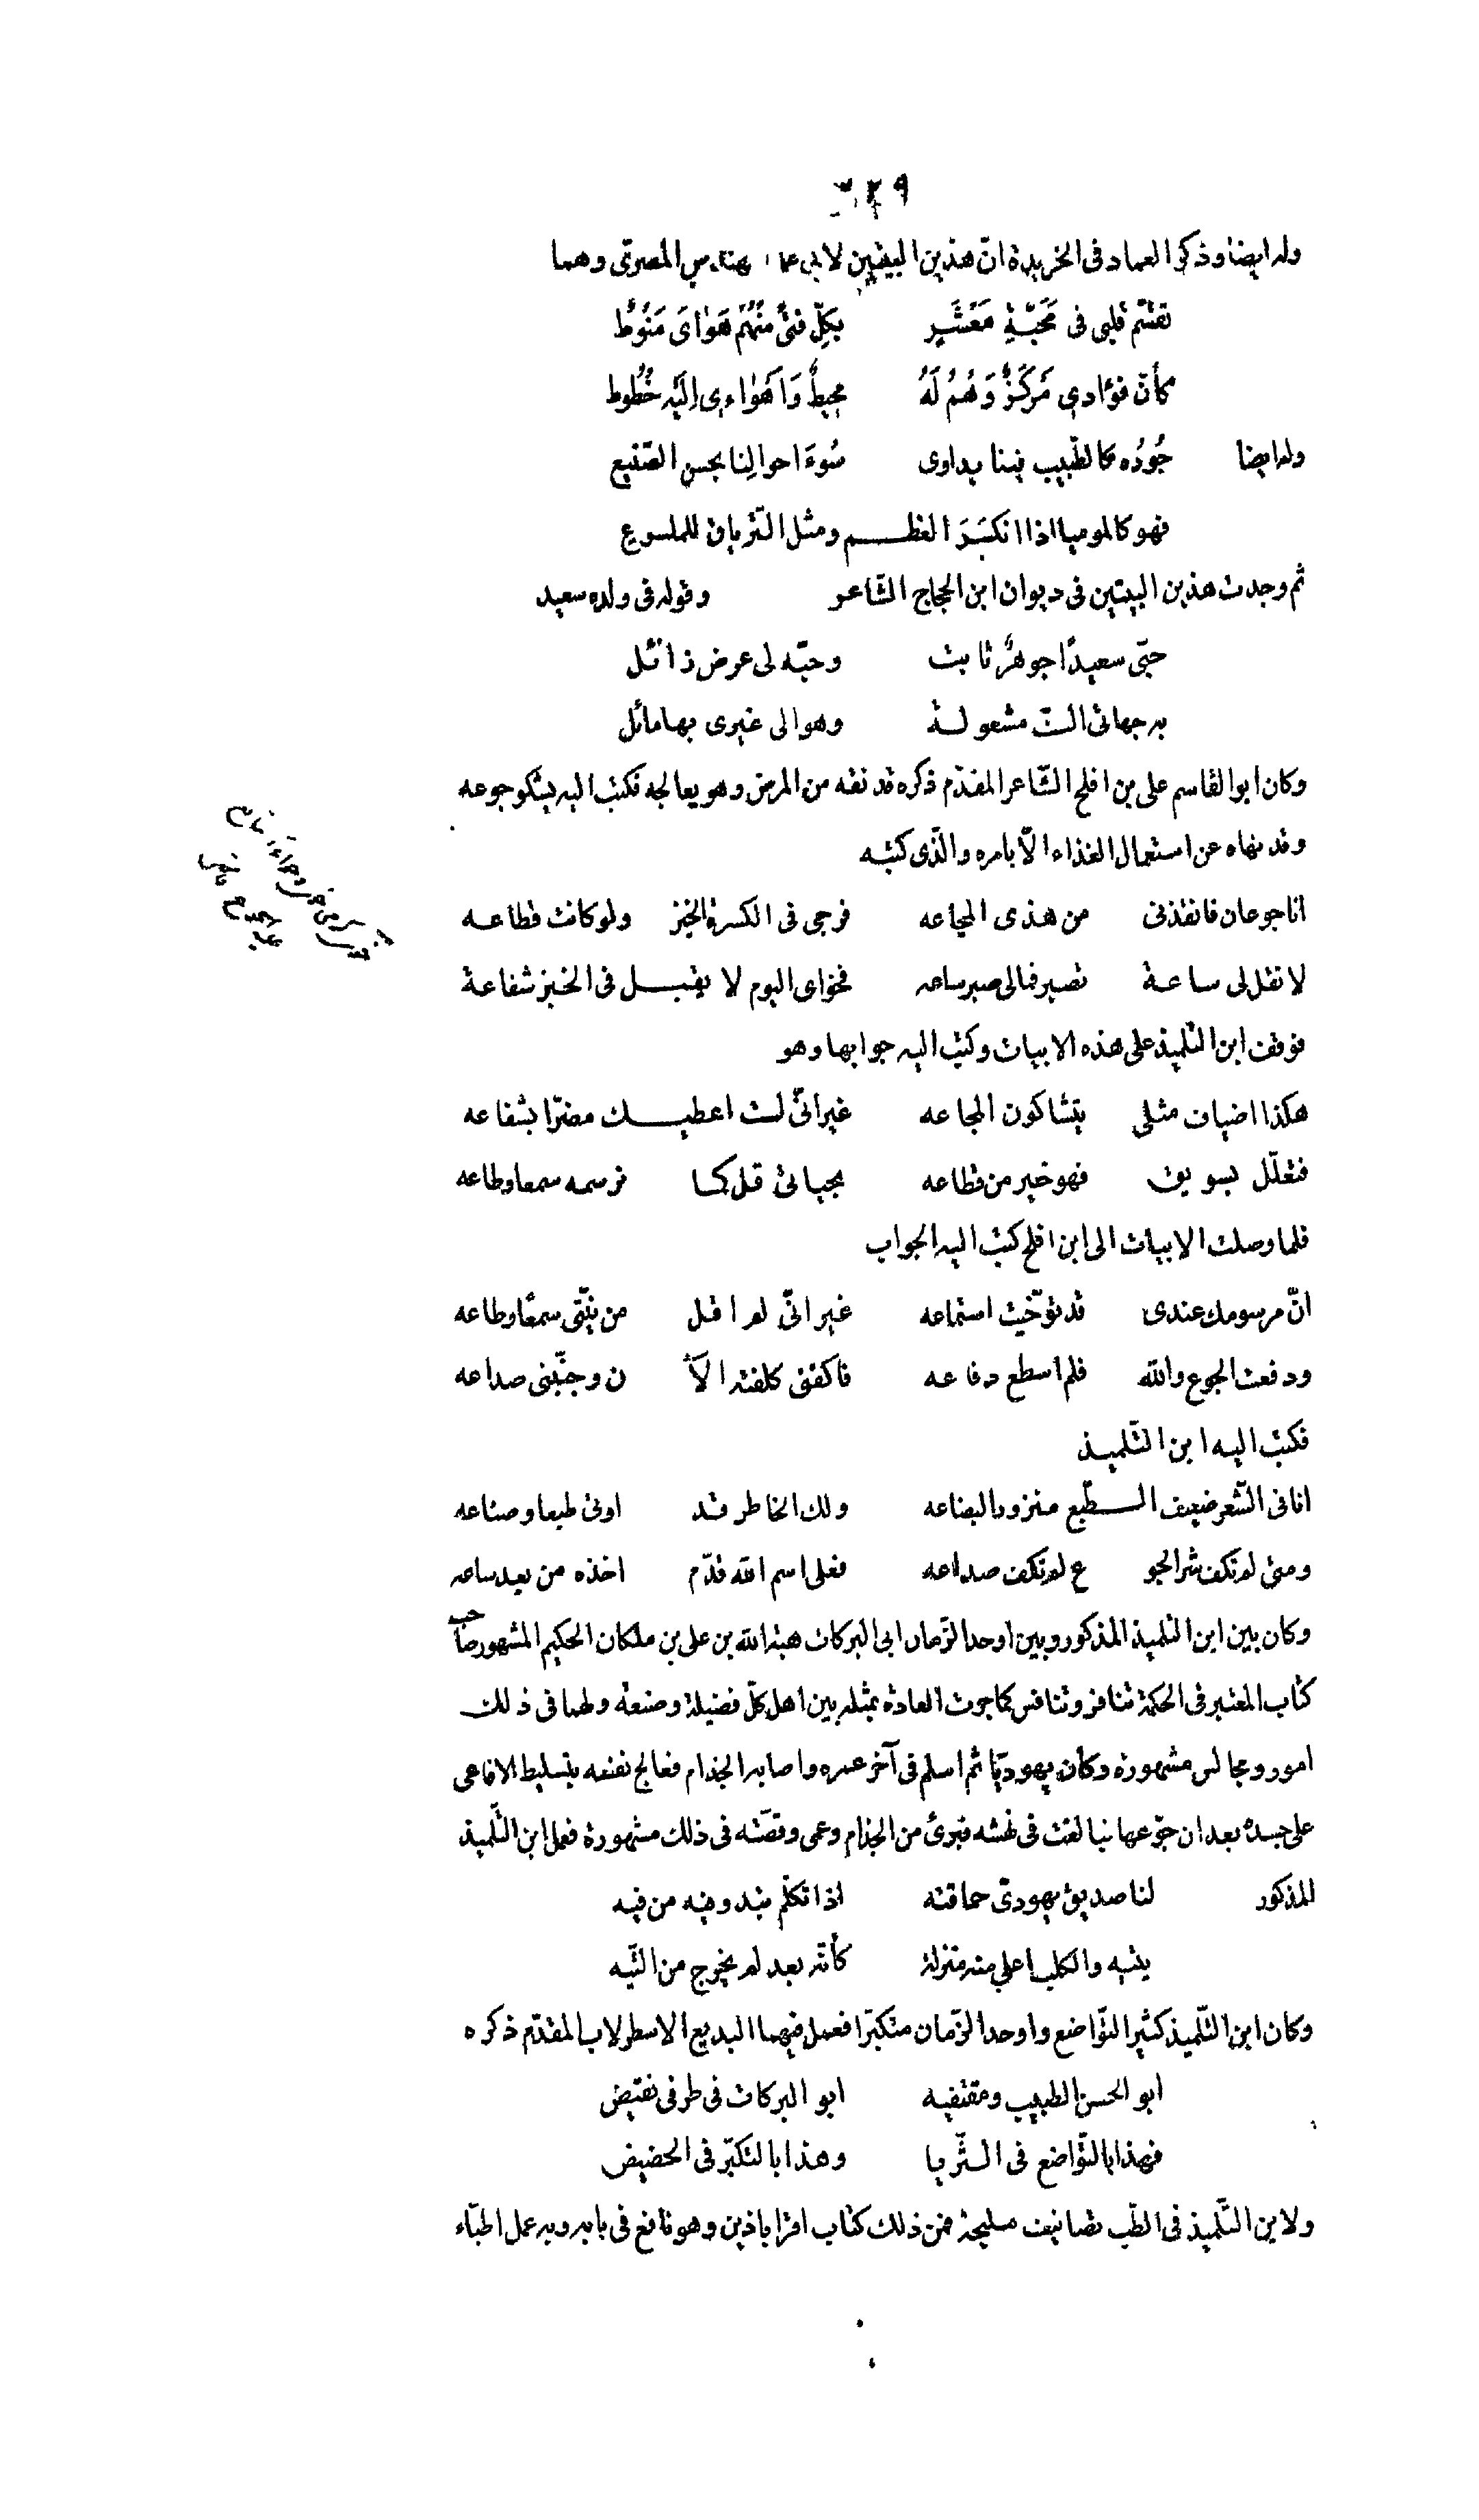 ٣٢٩
وله ايضا وذكر العماد فى الخريدة انّ هذين البيتين لابى المهندس المصرىّ وهما
تقسّم قلبى فى مَحَبّةِ مَعْشَرٍ بكلّ فتىً مِنْهُم هَوٰاىَ مَنُوطُ
كأنّ فؤادى مَرْكَزٌ وَهُمُ لَهُ محيطٌ وَاَهْوٰاءى اِلَيْهِ خُطُوط
وله ايضا جُودُه كالطّبيب فينا يداوى سُوءَ احوالِنا بحسن الصّنيع
فهو كالموميا اذا انكسَرَ العظـم ومثل التّرياق للملسوع
ثم وجدت هذين البيتين فى ديوان ابن الحجاج الشّاعر وقوله فى ولده سعيد
حبّى سعيدًا جوهرٌ ثابت وحبّه لى عرض زائل
به جهاتى الستّ مشغولة وهو الى غيرى بها مائل
وكان ابو القاسم على بن افلح الشّاعر المقدّم ذكره قد نقه من المرض وهو يعالجه فكتب اليه يشكو جوعه
وقد نهاه عن استعمال الغذاء الّا بامره والّذى كتبه
انا جوعان فانقذنى من هذى المجاعه فرجى فى الكسرة الخبز ولو كانت قطاعه
لا تقل لى ساعة تصبر فمالى صبر ساعه فخواى اليوم لا يقبـل فى الخبز شفاعة
فوقف ابن التّلميذ على هذه الابيات وكتب اليه جوابها وهو
هكذا اضياف مثلى يتشاكون المجاعه غير انّى لست اعطيـك مضرّا بشفاعه
فتعلّل بسويق فهو خير من قطاعه بحياتى قل كما نرسمه سمعا وطاعه
فلما وصلت الابيات الى ابن افلح كتب اليه الجواب
انّ مرسومك عندى قد توخّيت استماعه غير انّى لم اقل من نيّتى سمعًا وطاعه
ودفعت الجوع والله فلم اسطع دفاعه فاكفنى كلفته الآ ن وجنّبنى صداعه
فكتب اليه ابن التّلميذ
انا فى الشّعر ضعيف الـطّبع منزور البضاعه ولك الخاطر قد اوتى طبعا وصناعه
ومتى لم تكف شر الجو ع لم تكف صداعه فعلى اسم الله قدّم اخذه من بعد ساعه
وكان بين ابن التلميذ المذكور وبين اوحد الزّمان ابى البركات هبة الله بن على بن ملكان الحكيم المشهور صاحب
كتاب المعتبر فى الحكمة تنافر وتنافس كما جرت العادة بمثله بين اهل كلّ فضيلة وصنعة ولهما فى ذلك
امور ومجالس مشهورة وكان يهوديّا ثم اسلم فى آخر عمره واصابه الجذام فعالج نفسه بتسليط الافاعى
على جسده بعد ان جوّعها فبالغت فى نهشه فبرئ من الجذام وعمى وقصّته فى ذلك مشهورة فعمل ابن التّلميذ
المذكور لنا صديق يهودىّ حماقته اذا تكلّم تبدو فيه من فيه
يتيه والكلب اعلى منه منزلة كأنّه بعد لم يخرج من التّيه
وكان ابن التّلميذ كثير التّواضع واوحد الزّمان متكبّرا فعمل فيهما البديع الاسطرلابى المقدّم ذكره
ابو الحسن الطبيب ومقتفيه ابو البركات فى طرفى نقيض
فهذا بالتّواضع فى الثّريا وهذا بالتكبّر فى الحضيض
ولابن التّلميذ فى الطّب تصانيف مليحة فمن ذلك كتاب اقراباذين وهو نافع فى بابه وبه عمل اطبّاء